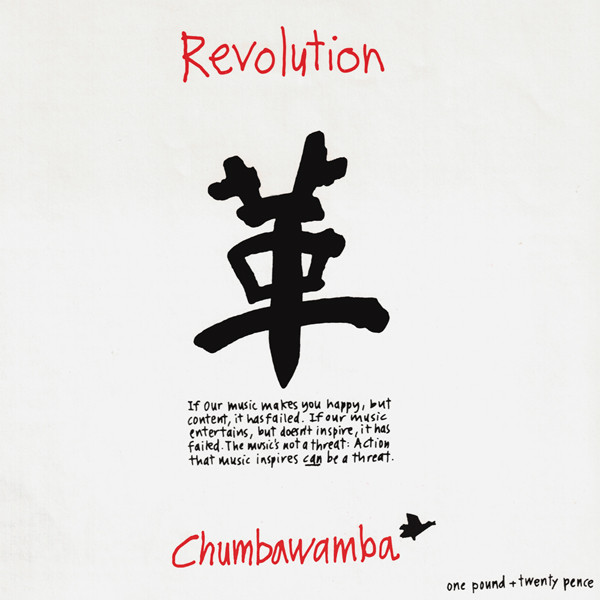 Revolution
革
If our music makes you happy, but
content, it has failed. If our music
entertains, but doesn't inspire, it has
failed. The music's not a threat: Action
that music inspires can be a threat.
Chumbawamba
one pound + twenty pence